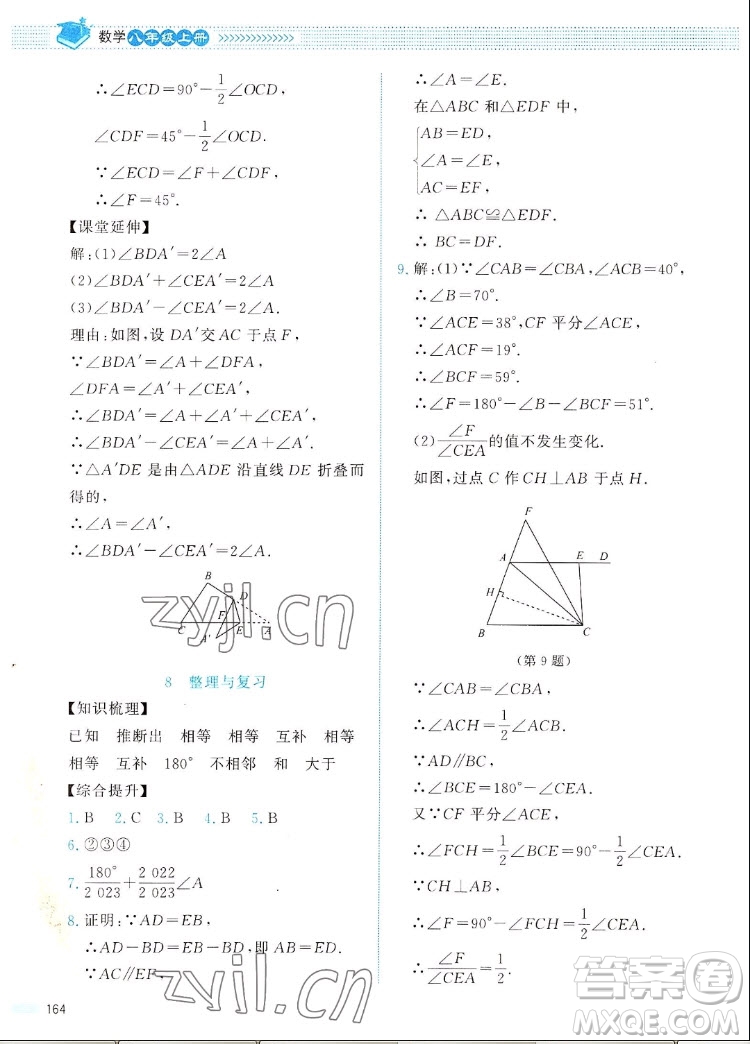 数学八年级上册
∴∠ECD=90°-1/2∠OCD,
∠CDF=45°-1/2∠OCD.
∵∠ECD=∠F+∠CDF,
∴∠F=45°.
【课堂延伸】
解:(1)∠BDA′=2∠A
(2)∠BDA′+∠CEA′=2∠A
(3)∠BDA′-∠CEA′=2∠A.
理由:如图,设 DA′交 AC 于点 F,
∵∠BDA′=∠A+∠DFA,
∠DFA=∠A′+∠CEA′,
∴∠BDA′=∠A+∠A′+∠CEA′,
∴∠BDA′-∠CEA′=∠A+∠A′.
∵△A′DE 是由△ADE 沿直线 DE 折叠而
得的,
∴∠A=∠A′,
∴∠BDA′-∠CEA′=2∠A.
B
D
F
C
A′
E
A
8 整理与复习
【知识梳理】
已知 推断出 相等 相等 互补 相等
相等 互补 180° 不相邻 和 大于
【综合提升】
1. B 2. C 3. B 4. B 5. B
6. ②③④
7. 180°/2 023+2 022/2 023∠A
8. 证明:∵AD=EB,
∴AD-BD=EB-BD,即 AB=ED.
∵AC∥EF,
164
∴∠A=∠E.
在△ABC 和△EDF 中,
AB=ED,
∠A=∠E,
AC=EF,
∴ △ABC≌△EDF.
∴ BC=DF.
9. 解:(1)∵∠CAB=∠CBA,∠ACB=40°,
∴∠B=70°.
∵∠ACE=38°,CF 平分∠ACE,
∴∠ACF=19°.
∴∠BCF=59°.
∴∠F=180°-∠B-∠BCF=51°.
(2)∠F/∠CEA的值不发生变化.
如图,过点 C 作 CH⊥AB 于点 H.
F
A
E
D
H
B
C
(第 9 题)
∵∠CAB=∠CBA,
∴∠ACH=1/2∠ACB.
∵AD∥BC,
∴∠BCE=180°-∠CEA.
又∵CF 平分∠ACE,
∴∠FCH=1/2∠BCE=90°-1/2∠CEA.
∵CH⊥AB,
∴∠F=90°-∠FCH=1/2∠CEA.
∴∠F/∠CEA=1/2.
zyjl.cn
zyjl.cn
答案圈